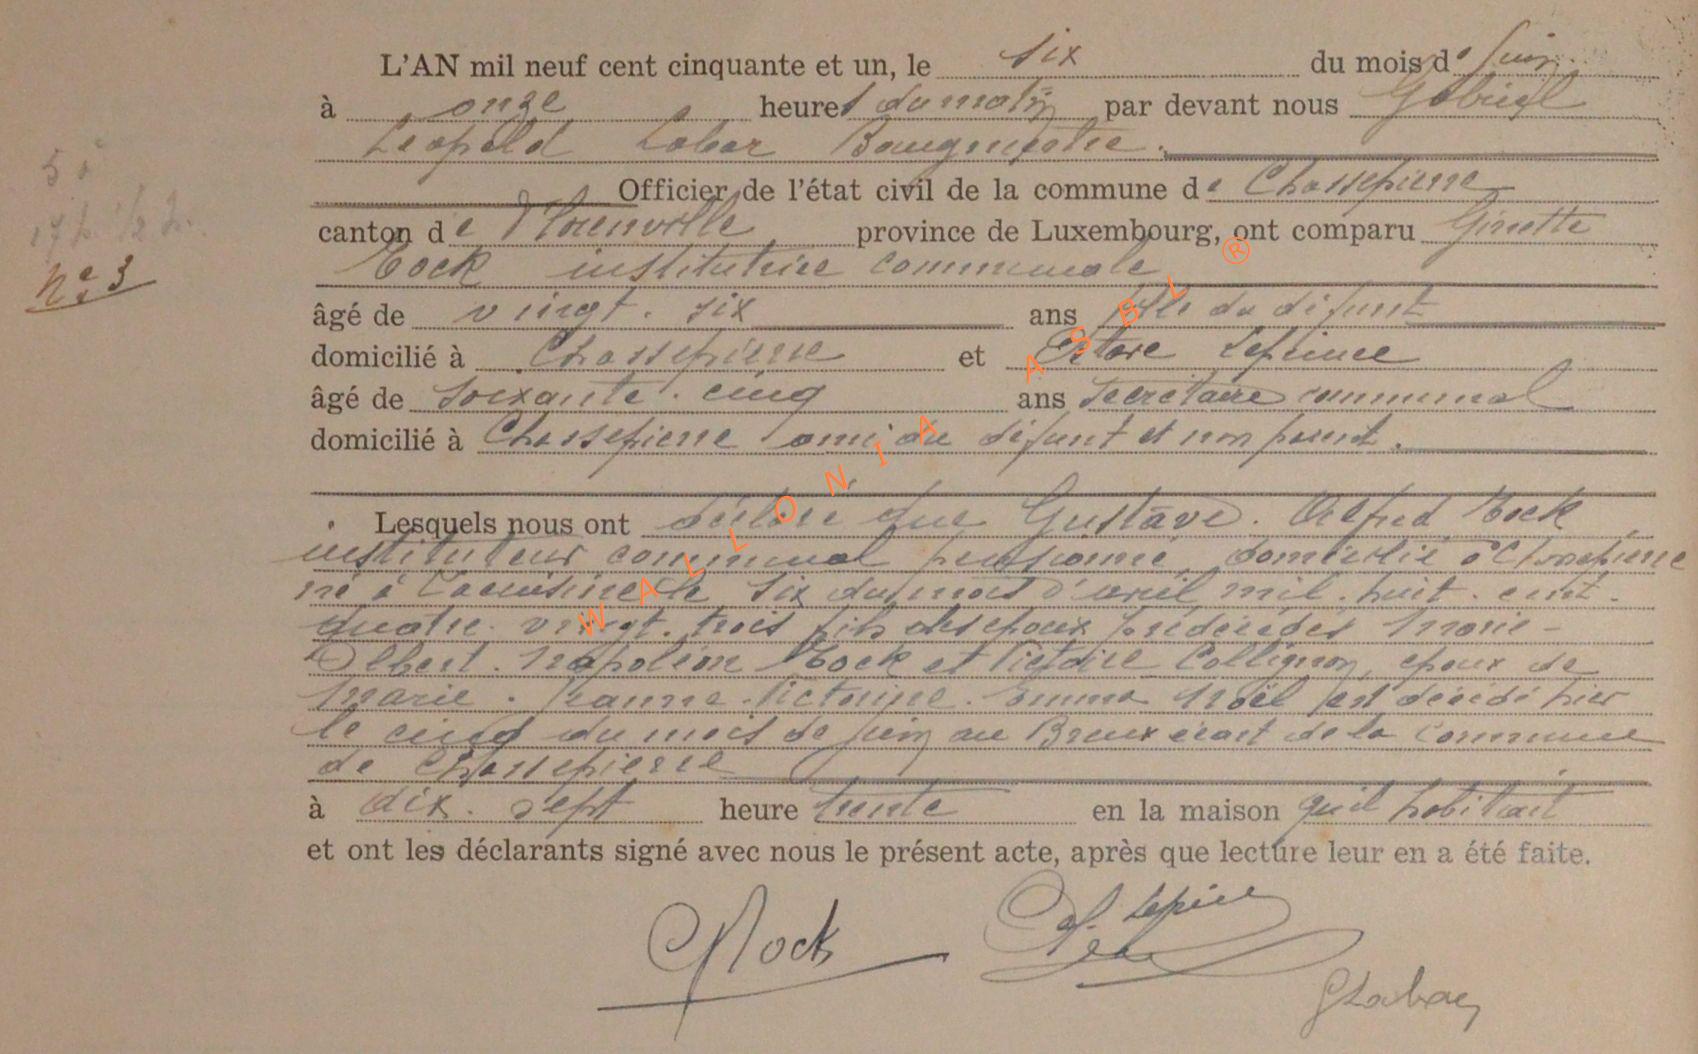 L'AN mil neuf cent cinquante et un, le six du mois de Juin
à onze heures du matin par devant nous Gabriel
Léopold Labar Bourgmestre.
Officier de l'état civil de la commune de Chassepierre
5 à
17 h 1/2
canton de Florenville province de Luxembourg, ont comparu Ginette
Nº 3
Mock institutrice communale
âgé de vingt-six ans fille du défunt
domicilié à Chassepierre et Leprince
âgé de soixante-cinq ans secrétaire communal
domicilié à Chassepierre ami du défunt et non parent.
Lesquels nous ont déclaré que Gustave-Alfred Mock
instituteur communal pensionné, domicilié à Chassepierre
né à Lacuisine le six du mois d'avril mil-huit-cent-
quatre-vingt-trois fils des époux prédécédés Marie-
Albert-Napoléon Mock et Victoire Collignon, époux de
Marie-Jeanne-Victorine-Emma Noël est décédé hier
le cinq du mois de juin au Breux écart de la Commune
de Chassepierre
à dix-sept heure trente en la maison qu'il habitait
et ont les déclarants signé avec nous le présent acte, après que lecture leur en a été faite.
GMock Leprince
GLabar
WALLONIA ASBL ®